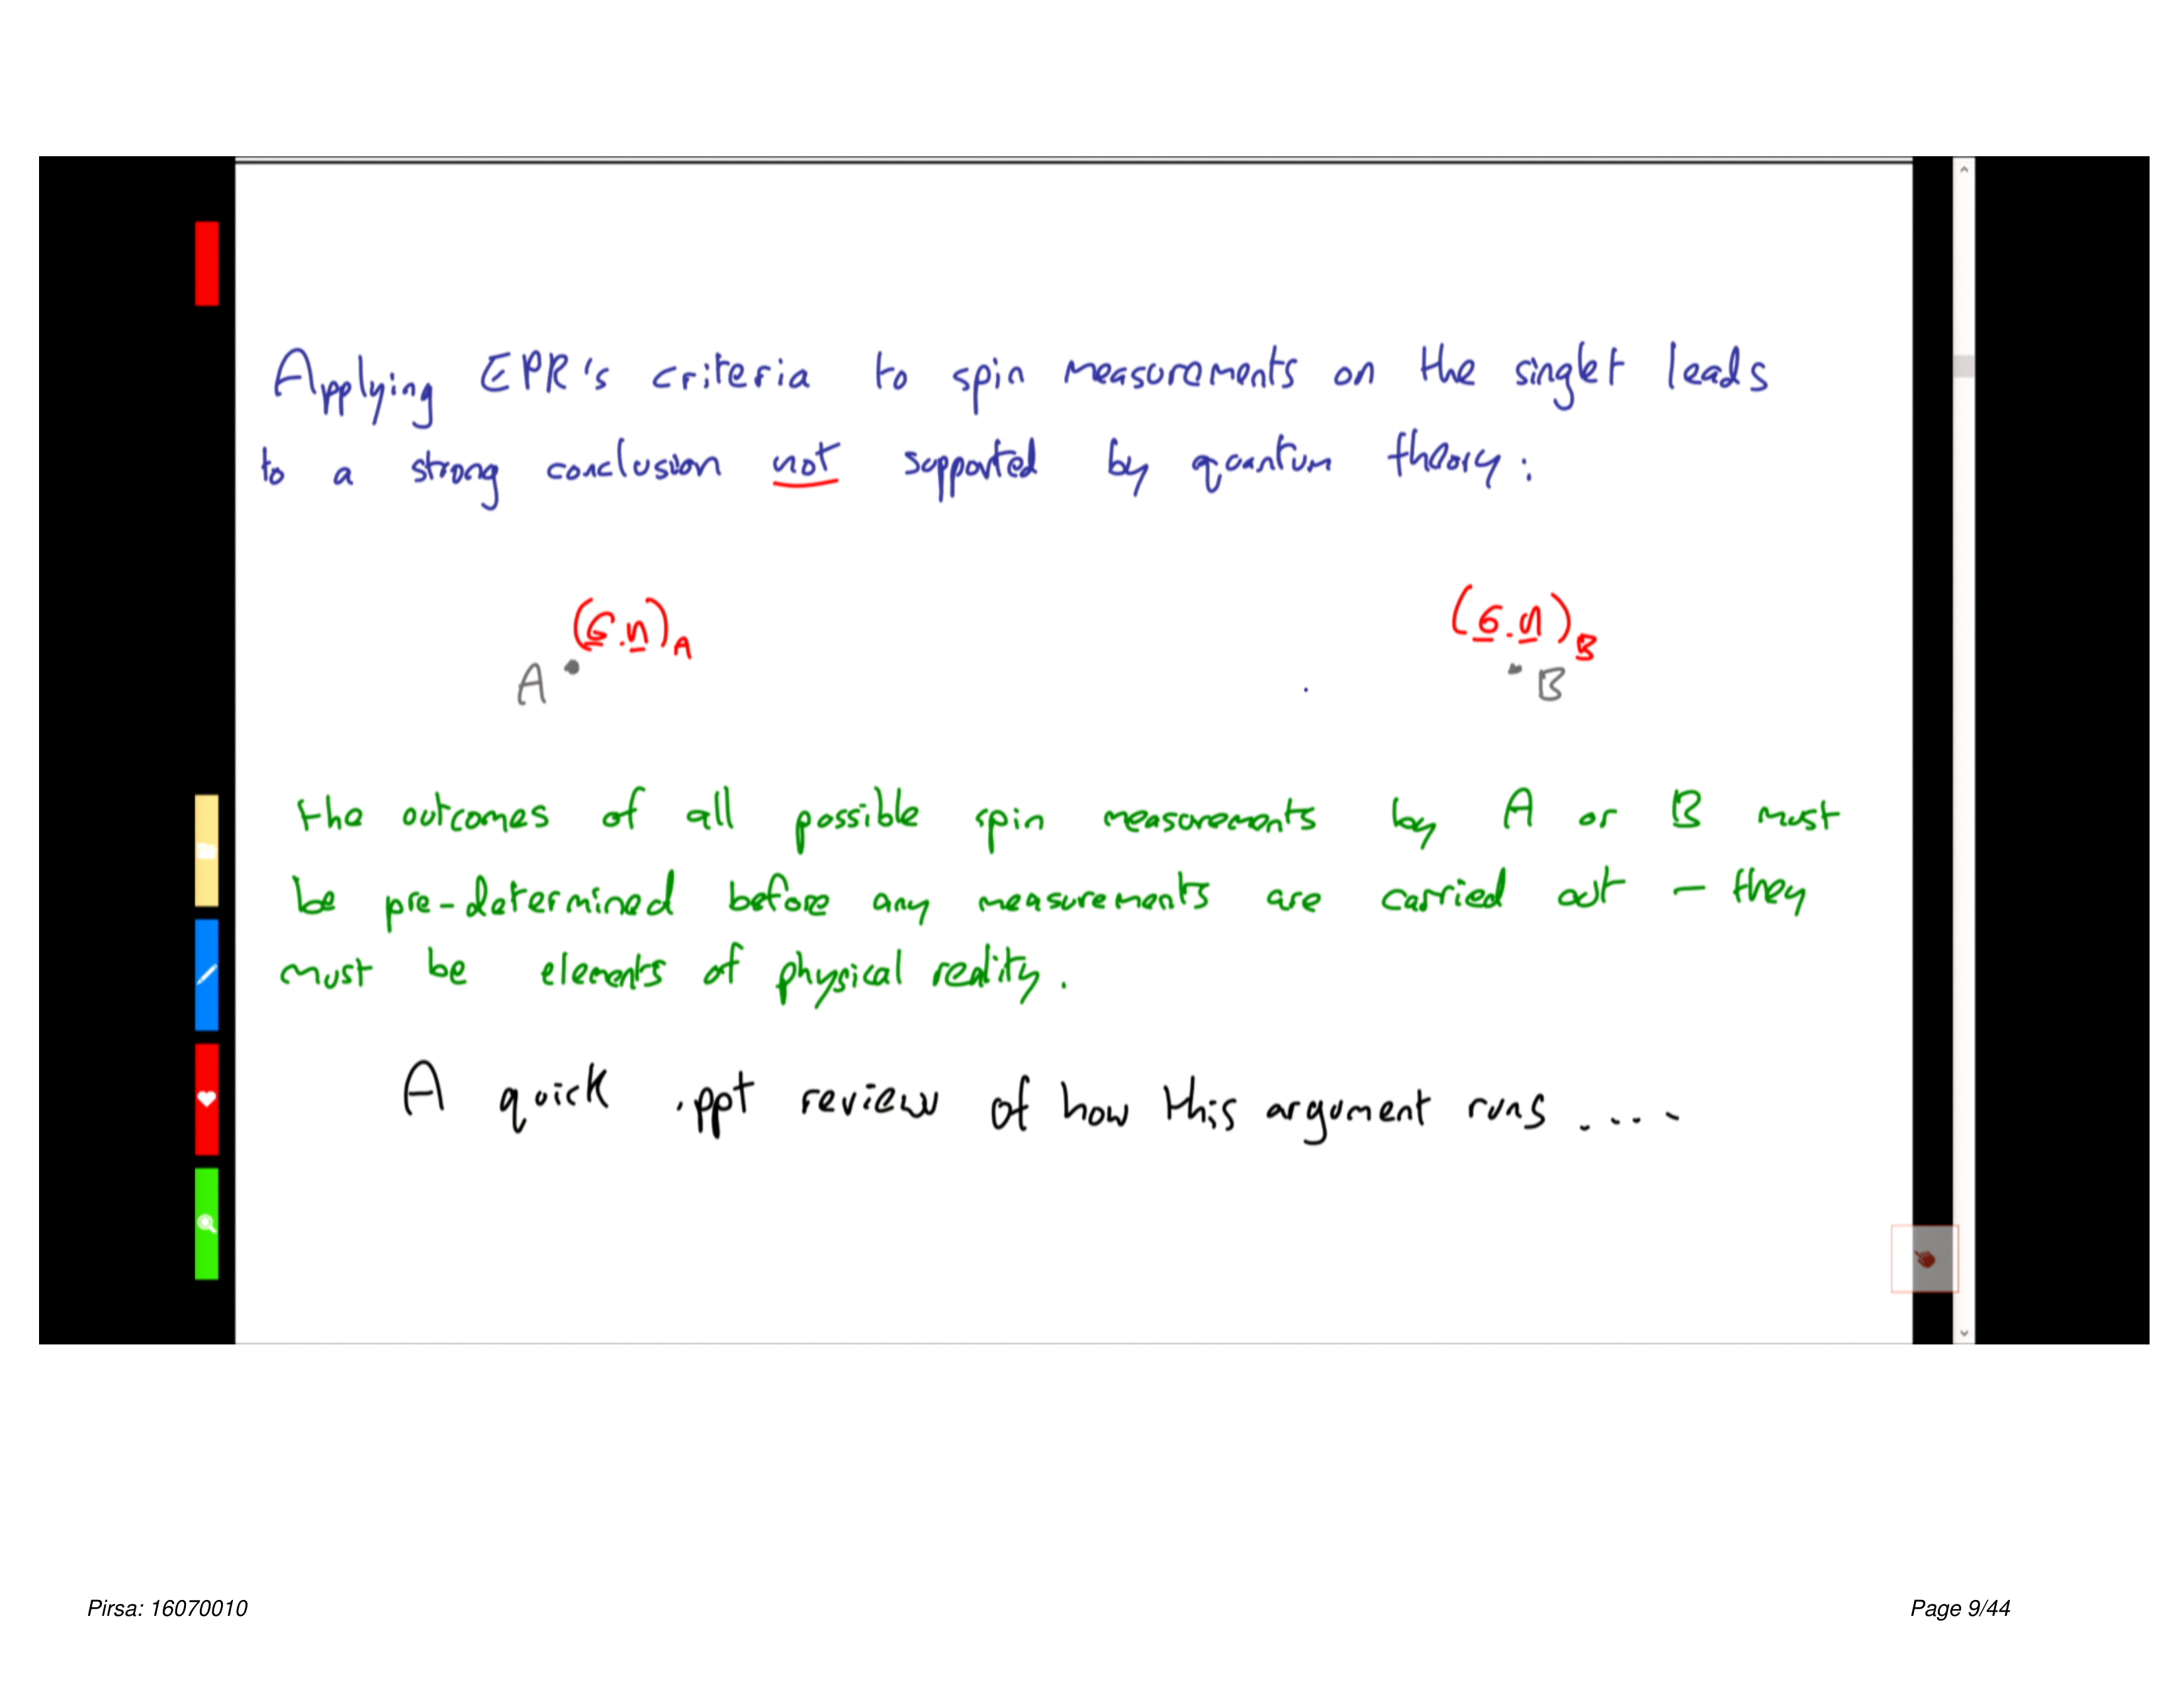 Applying EPR's criteria to spin measurements on the singlet leads
to a strong conclusion not supported by quantum theory:
(σ.n)A (σ.n)B
A B
the outcomes of all possible spin measurements by A or B must
be pre-determined before any measurements are carried out - they
must be elements of physical reality.
A quick .ppt review of how this argument runs ....
Pirsa: 16070010 Page 9/44